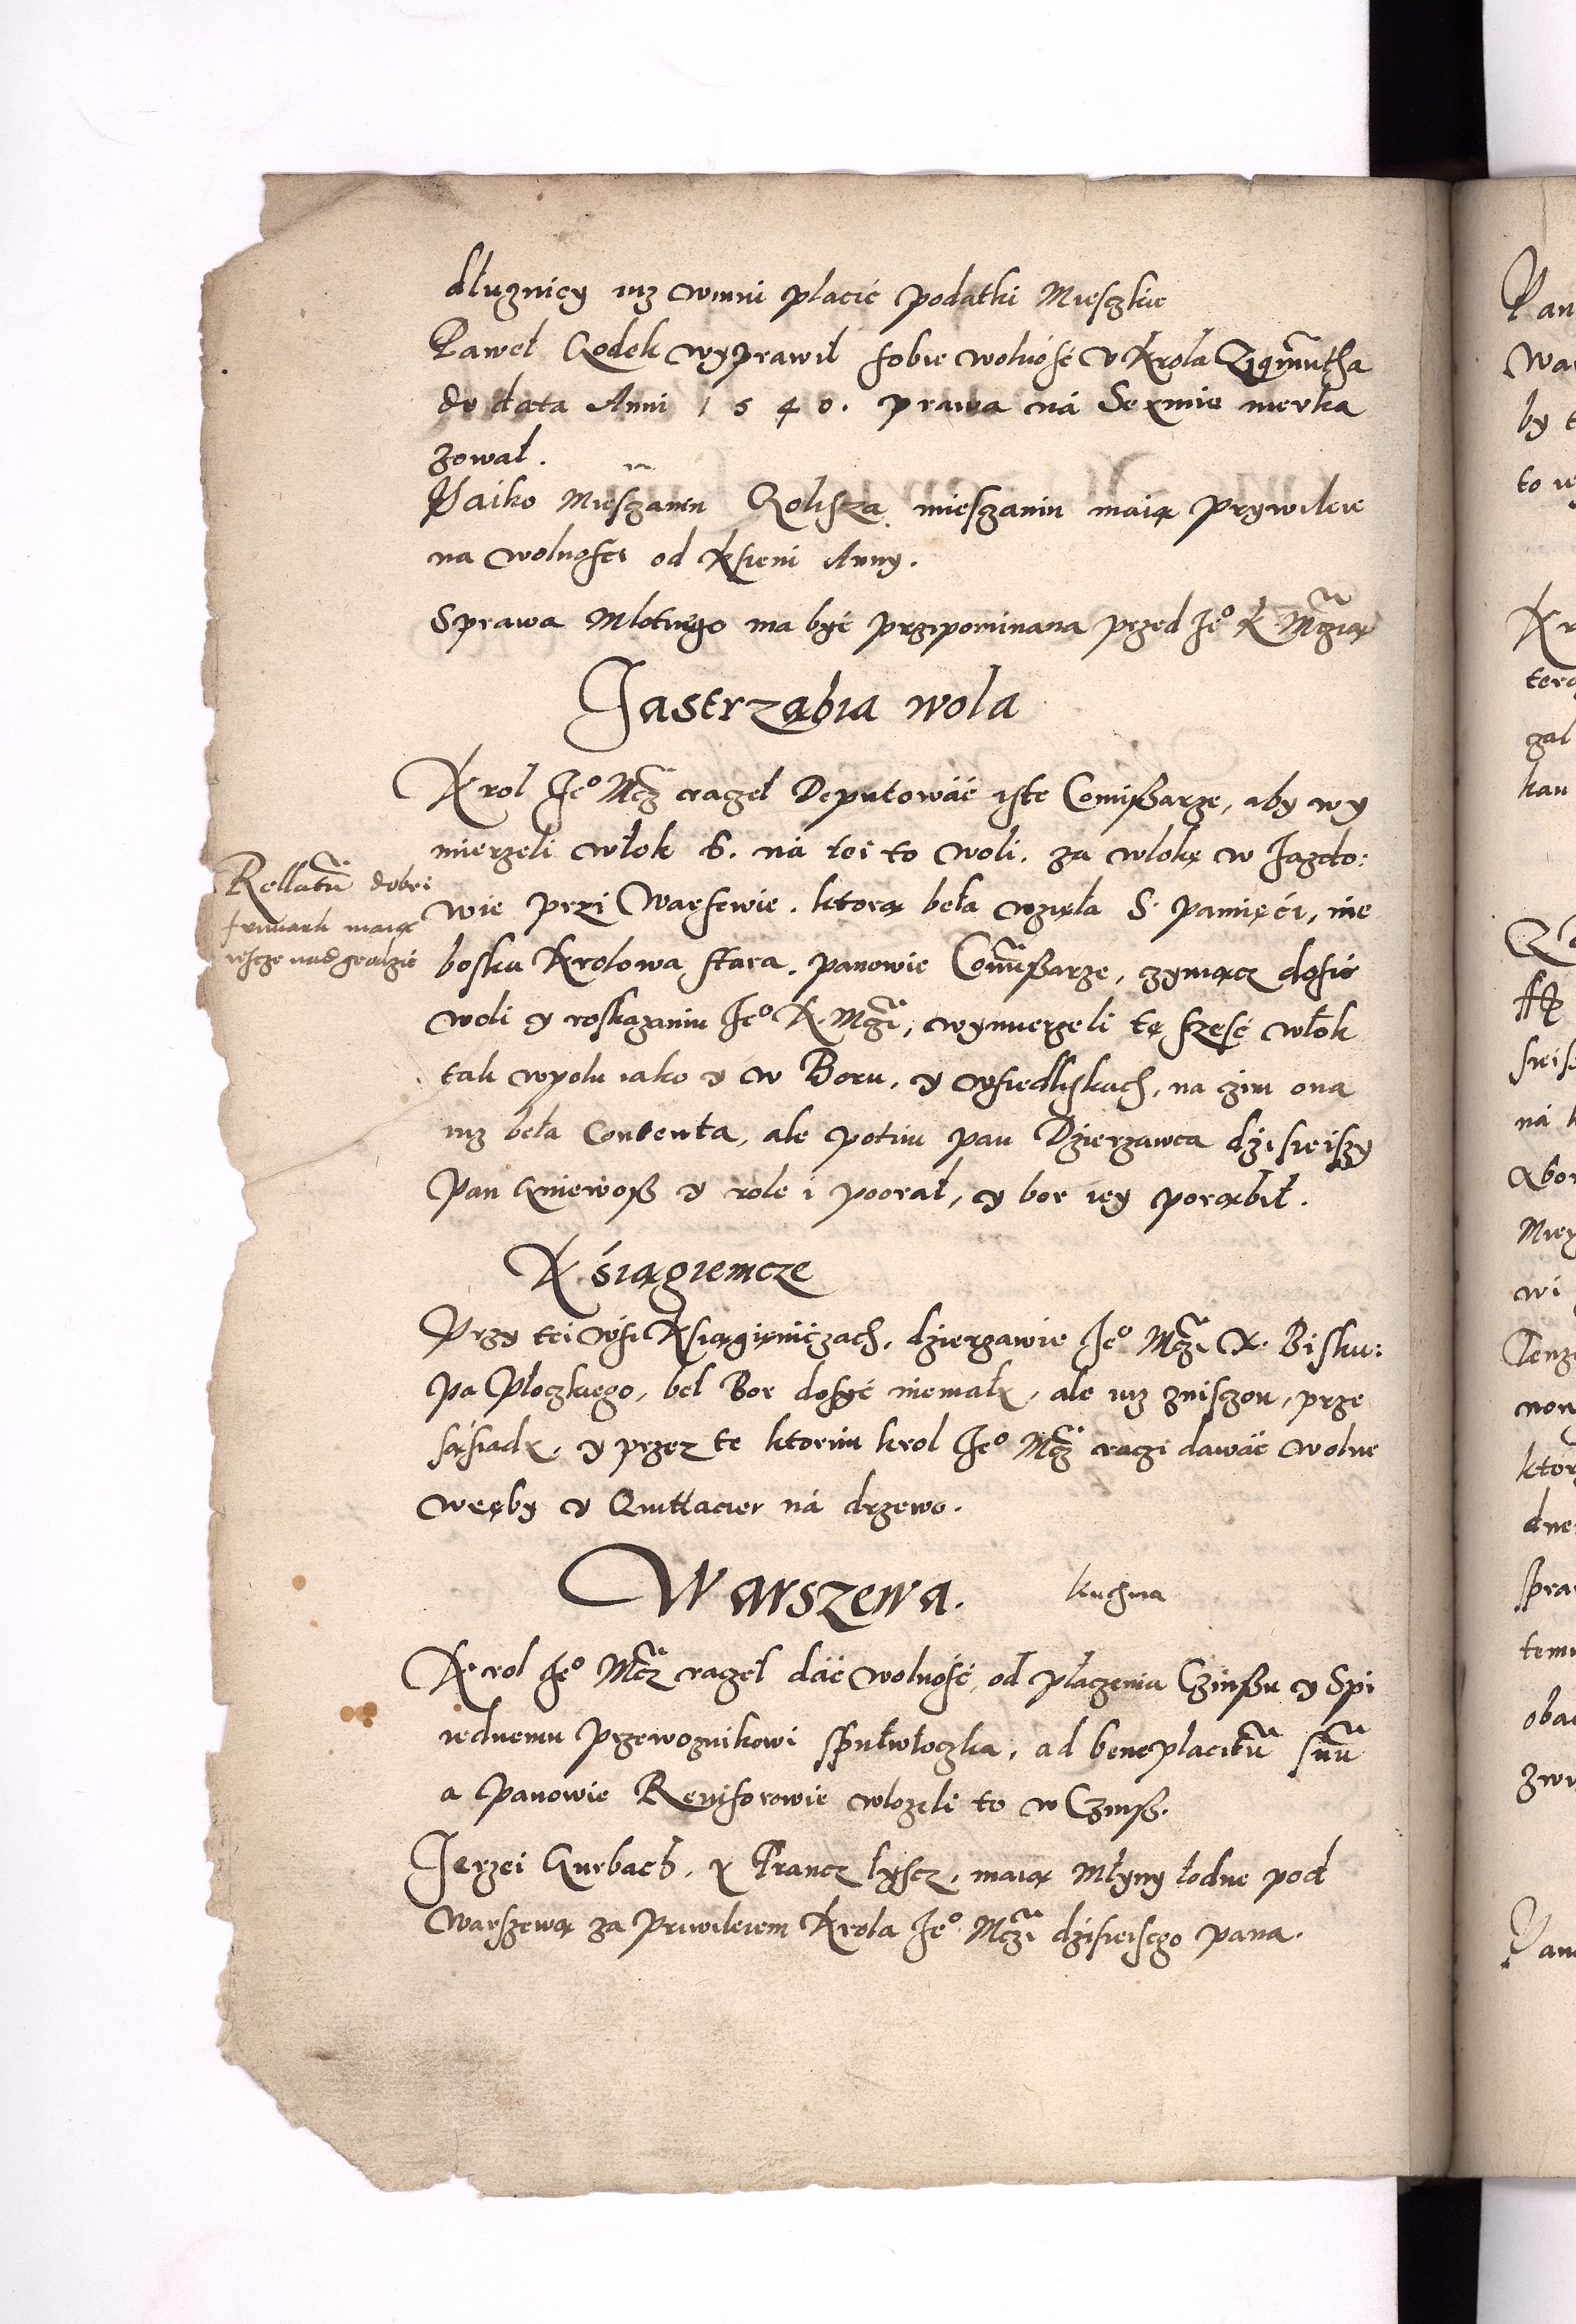 dłuznicy iuz winni placić podatki Mieszkie
Paweł Godek wyprawił sobie wolność v Krola Zigmuntha
de data Anni 1540. prawa ná Seymie nievka
zował.
Jaiko Miesczanin Golisza, miesczanin maią przywileie
na wolnosci od Xieni Anny.
Sprawa Mlotnego ma być przypominana przed Je° K. Mczią
Jastrzabia wola
Krol Je° Mcz raczeł Deputowáć iste Comißarze, aby wy
mierzeli włok 6. ná toi to woli. za włokę w Jazdo:
wie przi Warsewie. ktorą beła wzięła S. pamięći, nie
boska Krolowa stara. panowie Comißarze, czyniącz dosic
woli y roskazaniu Je° K. Mczi, wymierzeli tę sześć włok
tak wpolu iako y w Boru, y wsiedliskach, na czim ona
iuz beła Contenta, ale potim pan Dzierzawca dzisieiszy
Pan Gniewoß y role i poorał, y bor iey porąbił.
Rellatum dobri
frimark maią
iescze nadgrodzić
Kśiągiemcze
Przy tei wsi Ksiągieniczach, dzierzawie Je° Mczi X. Bisku:
pa Płoczkiego, beł Bor dosyć niemały, ale iuz zniszon, prze
sąsiady, y przez te ktorim krol Je° Mcz raczi dawáć wolne
wręby y Quittacier ná drzewo.
Warszewa. kuchnia
Krol Je° Mcz raczeł dáć wolność, od płaczenia Czinßu y Spi
iednemu przewoznikowi spułwłoczka, ad beneplacitum suum
a panowie Revisorowie włozeli to w Czinß.
Jerzei Gurbach, y Francz łyscz, maią Młyny łodne pod
Warszewą za priwileiem Krola Je° Mczi dzisieisego pana.